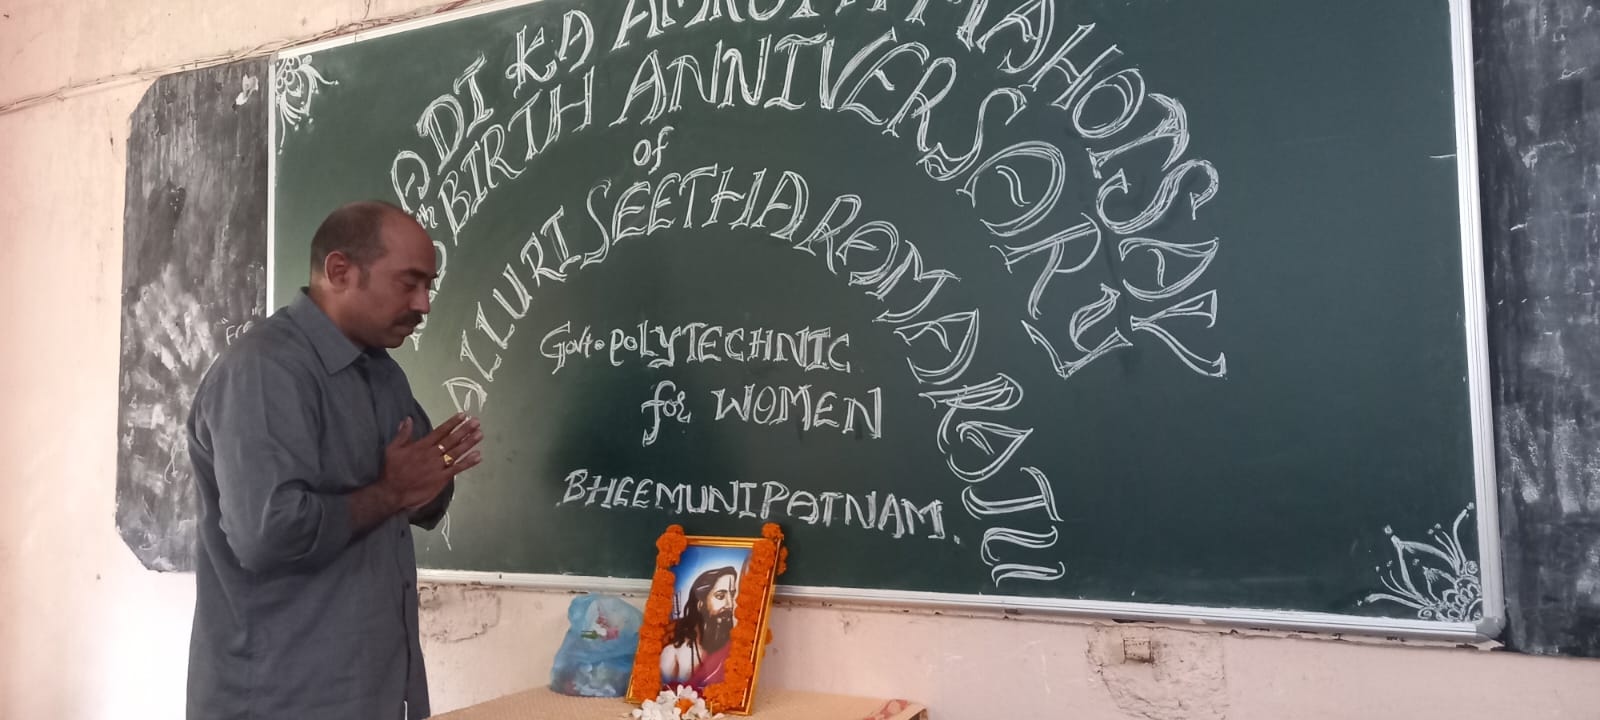 ADI KA AMRUTH MAHOTSAV
th BIRTH ANNIVERSORY
of
ALLURI SEETHARAMARAJU
Govt. POLYTECHNIC
for WOMEN
BHEEMUNIPATNAM.